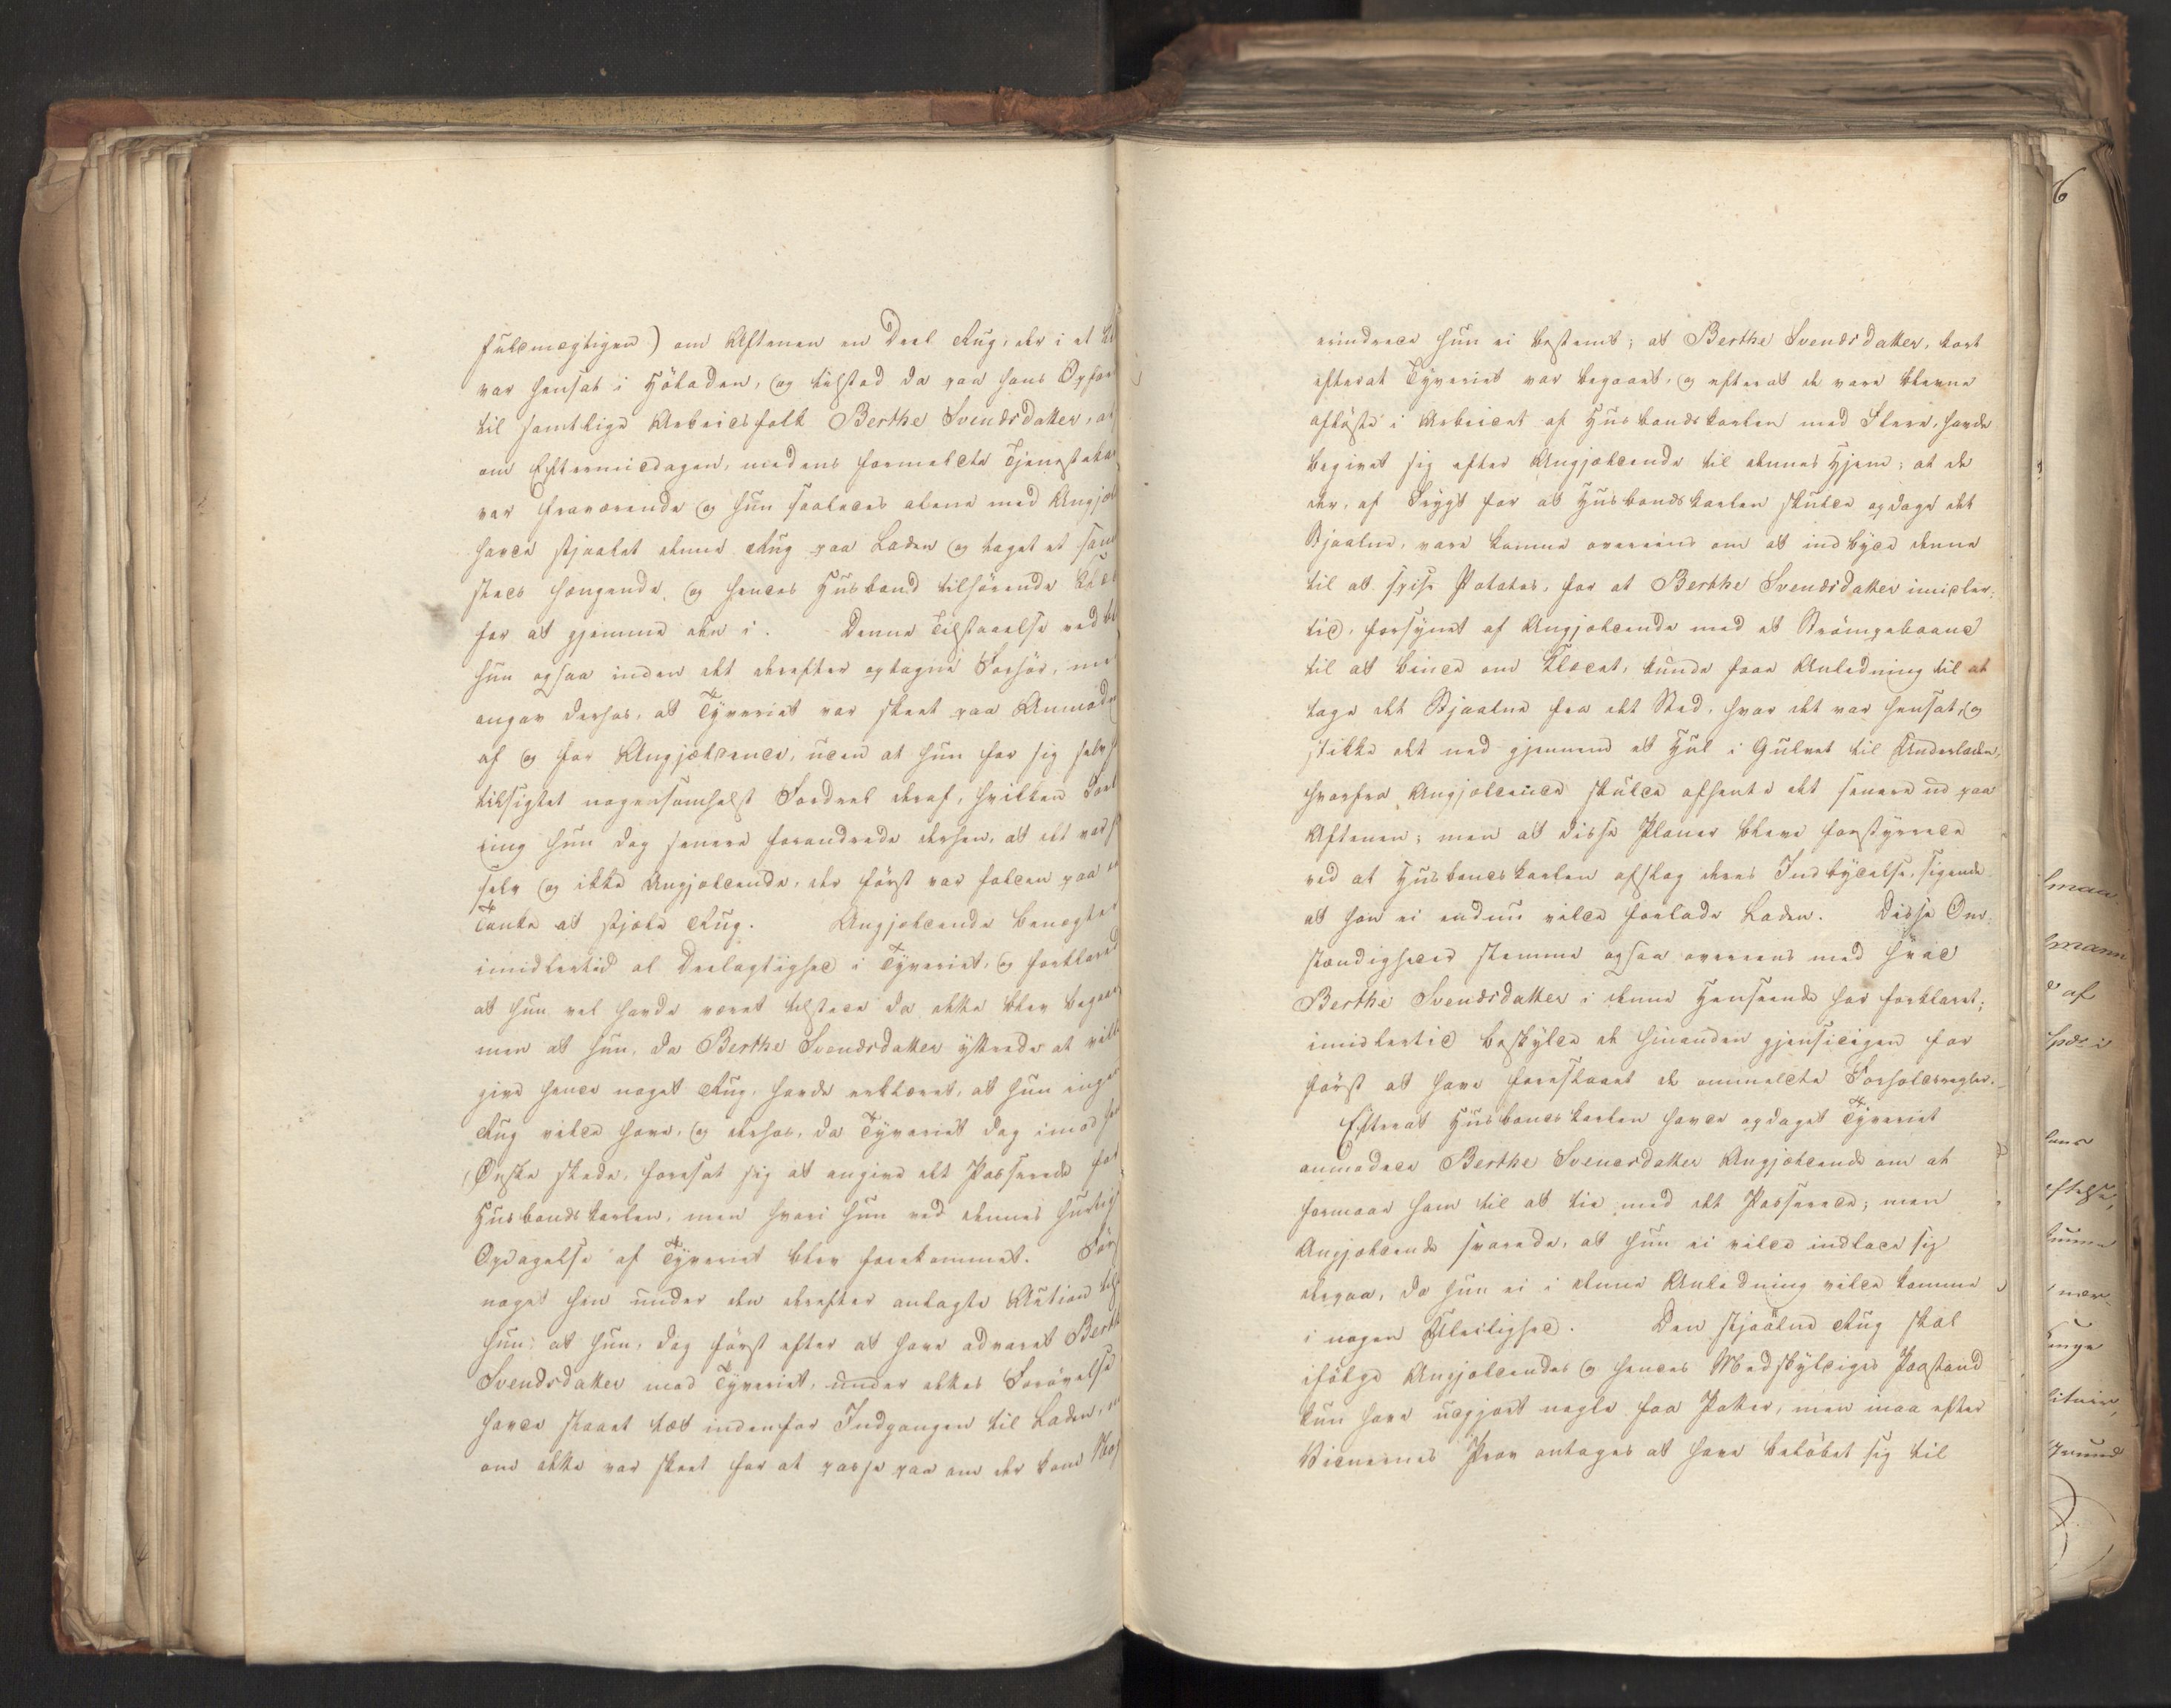 fuldmægtigen) om Aftenen en Deel Rug, der i et
var hensat i Höladen, og tilstod da paa hans
til samtlige Arbeidsfolk Berthe Svendsdatter, at
om Eftermiddagen, medens formeldte
var fraværende og hun saaledes alene med
havde stjaalet denne Rug paa Laden og taget et
steds hængende, og hendes Husbond tilhörende
for at gjemme den i. Denne Tilstaaelse
hun ogsaa inden det derefter optagne Forhör,
angav derhos, at Tyveriet var skeet paa
af og for Angjældende, uden at hun for sig selv
tilsigtet nogensomhelst Fordeel deraf, hvilken
ring hun dog senere forandrede derhen, at det var
selv og ikke Angjældende, der först var falden paa
Tanke at stjæle Rug. Angjældende
imidlertid al Deelagtighed i Tyveriet, og
at hun vel havde været tilstede da dette blev
men at hun, da Berthe Svendsdatter yttrede at
give hende noget Rug, havde erklæret, at hun
Rug vilde have, og derhos, da Tyveriet dog imod
Önske skede, foresat sig at angive det Passerede
Husbondskarlen, men hvori hun ved dennes
Opdagelse af Tyveriet blev forekommet.
noget hen under den derefter anlagte Action
hun: at hun, dog först efter at have advaret
Svendsdatter mod Tyveriet, under dettes Forövelse
havde staaet tæt indenfor Indgangen til Laden,
om dette var skeet for at passe paa om der kom
erindrede hun ei bestemt; at Berthe Svendsdatter, kort
efterat Tyveriet var begaaet, og efterat de vare blevne
aflöste i Arbeidet af Husbondskarlen med Flere, havde
begivet sig efter Angjældende til dennes Hjem; at de
der, af Frygt for at Husbondskarlen skulde opdage det
Stjaalne, vare komne overeens om at indbyde denne
til at spise Potetes, for at Berthe Svendsdatter imidler-
tid, forsynet af Angjældende med et Strömpebaand
til at binde om Klædet, kunde faae Anledning til at
tage det Stjaalne fra det Sted, hvor det var hensat, og
stikke det ned gjennem et Hul i Gulvet til Underladen,
hvorfra Angjældende skulde afhente det senere ud paa
Aftenen; men at disse Planer bleve forstyrrede
ved at Husbondskarlen afslog deres Indbydelse, sigende
at han ei endnu vilde forlade Laden. Disse Om-
stændigheder stemme ogsaa overeens med hvad
Berthe Svendsdatter i denne Henseende har forklaret;
imidlertid beskylde de hinanden gjensidigen for
först at have foreslaaet de ommeldte Forholdsregler.
Efterat Husbondskarlen havde opdaget Tyveriet
anmodede Berthe Svendsdatter Angjældende om at
formaae ham til at tie med det Passerede; men
Angjældende svarede, at hun ei vilde indlade sig
derpaa, da hun ei i denne Anledning vilde komme
i nogen Uleilighed. Den stjaalne Rug skal
ifölge Angjældendes og hendes Medskyldiges Paastand
kun have udgjort nogle faa Potter, men maa efter
Vidnernes Prov antages at have belöbet sig til